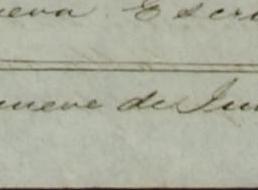 ueva Escri
nueve de Jun